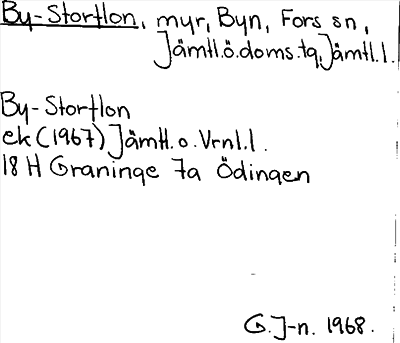 By-Storflon, myr, Byn, Fors sn,
Jämtl.ö.doms.tg, Jämtl.l.
By-Storflon
ek (1967) Jämtl.o.Vrnl.l.
18 H Graninge 7a Ödingen
G.J-n. 1968.